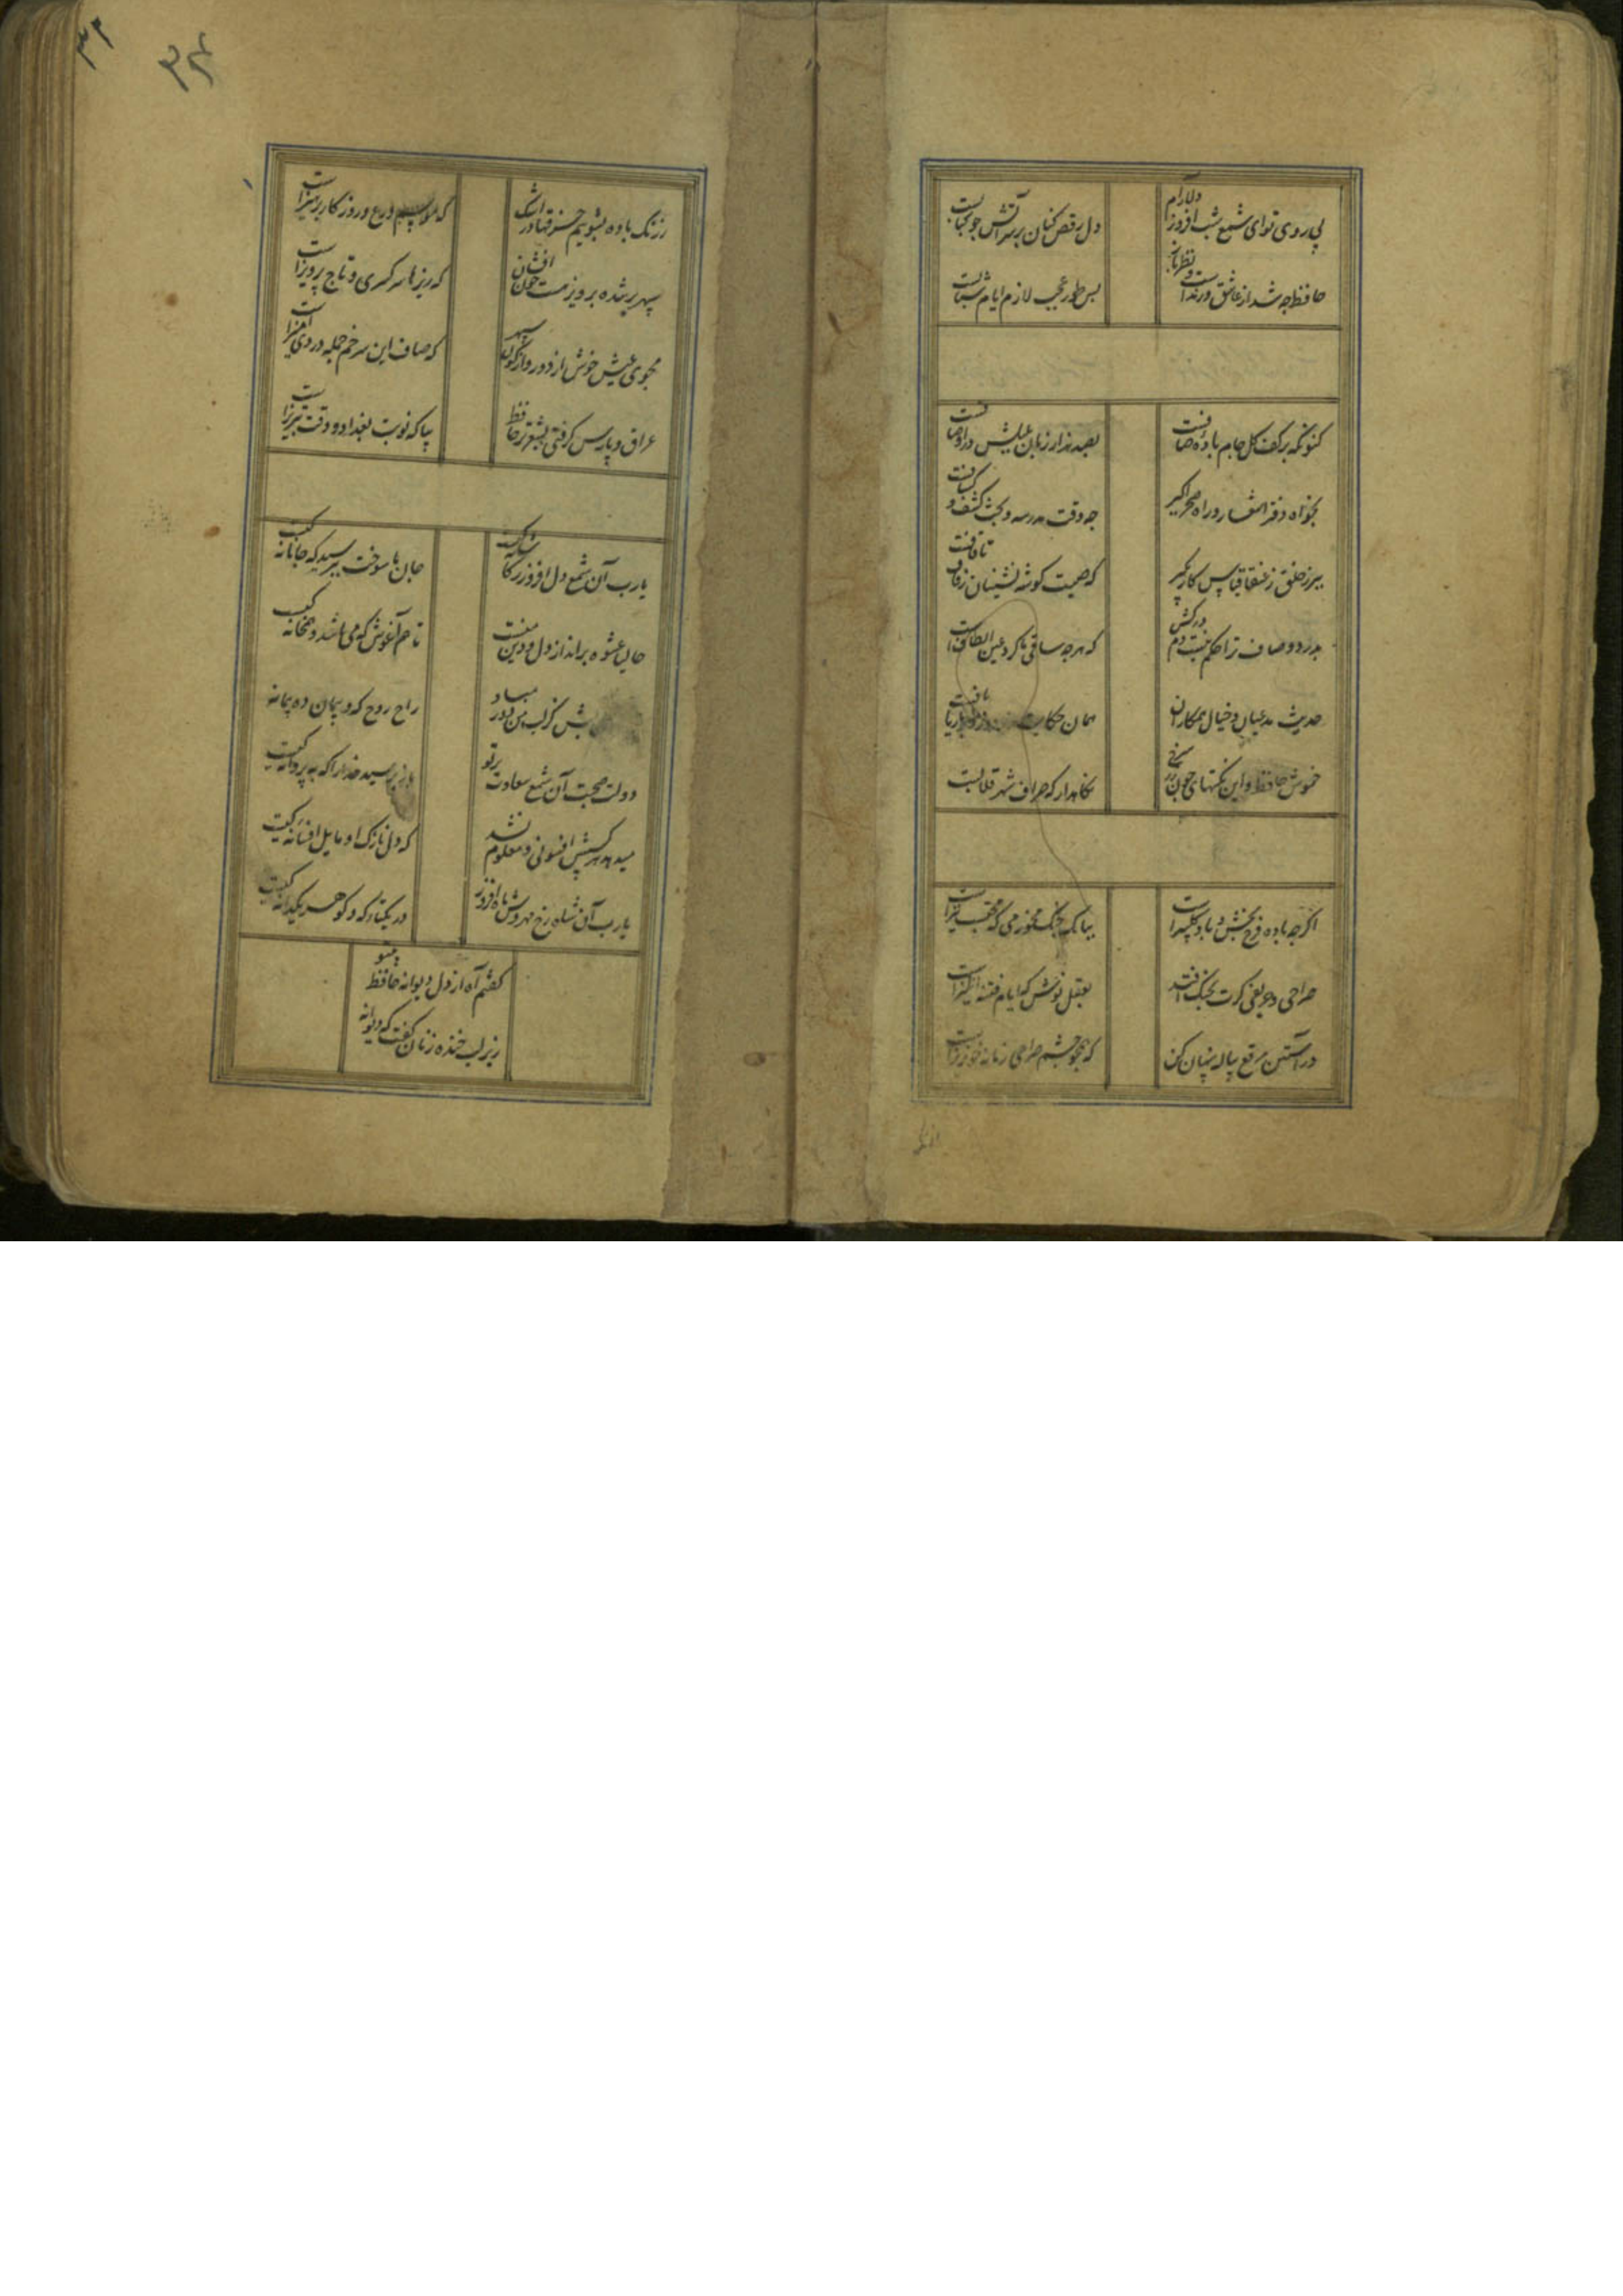 بی روی تو ای شمع شب افروز دلارام
دل رقص کنان بر سر آتش جو کبابست
حافظ جه شد ار عاشق و رندست و نظرباز
بس طور عجب لازم ایام شبابست
کنونکه بر کف کل جام باده صافست
بصد هزار زبان بلبلش در اوصافست
بخواه دفتر اشعار و راه صحرا کیر
جه وقت مدرسه و بحث کشف و کشافست
ببر ز خلق ز عنقا قیاس کار بکیر
که صیت کوشه نشینان ز قاف تا قافست
بدرد و صاف ترا حکم نیست دم درکش
که هرجه ساقی ما کرد عین الطافست
حدیث مدعیان و خیال همکاران
همان حکایت زردوز و بوریا بافست
خموش حافظ و این نکتهای جون زر سرخ
نکاهدار که صراف شهر قلابست
اکرجه باده فرح بخش و باد کلبیزاست
ببانک جنک مخور می که محتسب تیزاست
صراحی و حریفی کرت بجنک افتد
بعقل نوش که ایام فتنه انکیزاست
در آستین مرقع پیاله پنهان کن
که همجو جشم صراحی زمانه خونریزاست
ز رنک باده بشویم خرقها در اشک
که موسم ورع و روزکار پرهیزاست
سپهر برشده پرویزنست خون افشان
که ریزه اش سر کسری و تاج پرویزاست
مجوی عیش خوش از دور واژکون سپهر
که صاف این سر خم جمله دردی آمیزاست
عراق و پارس کرفتی بشعر تر حافظ
بیا که نوبت بغداد و وقت تبریزاست
یارب آن شمع دل افروز ز کاشانه کیست
جان ما سوخت بپرسید که جانانه کیست
حالیا عشوه براندازد دل و دین منست
تا هم آغوش که می باشد و همخانه کیست
لبش کز لب من دور مباد
راح روح که و پیمان ده پیمانه
دولت صحبت آن شمع سعادت پرتو
باز پرسید خدا را که به پروانه کیست
میدهد هر کسیش افسونی و معلوم نشد
که دل نازک او مایل افسانه کیست
یارب آن شاه رخ مهروش ماه افروز
در یکتا که و کوهر یکدانه کیست
کفتم آه از دل دیوانه حافظ بیتو
زیر لب خنده زنان کفت که دیوانه